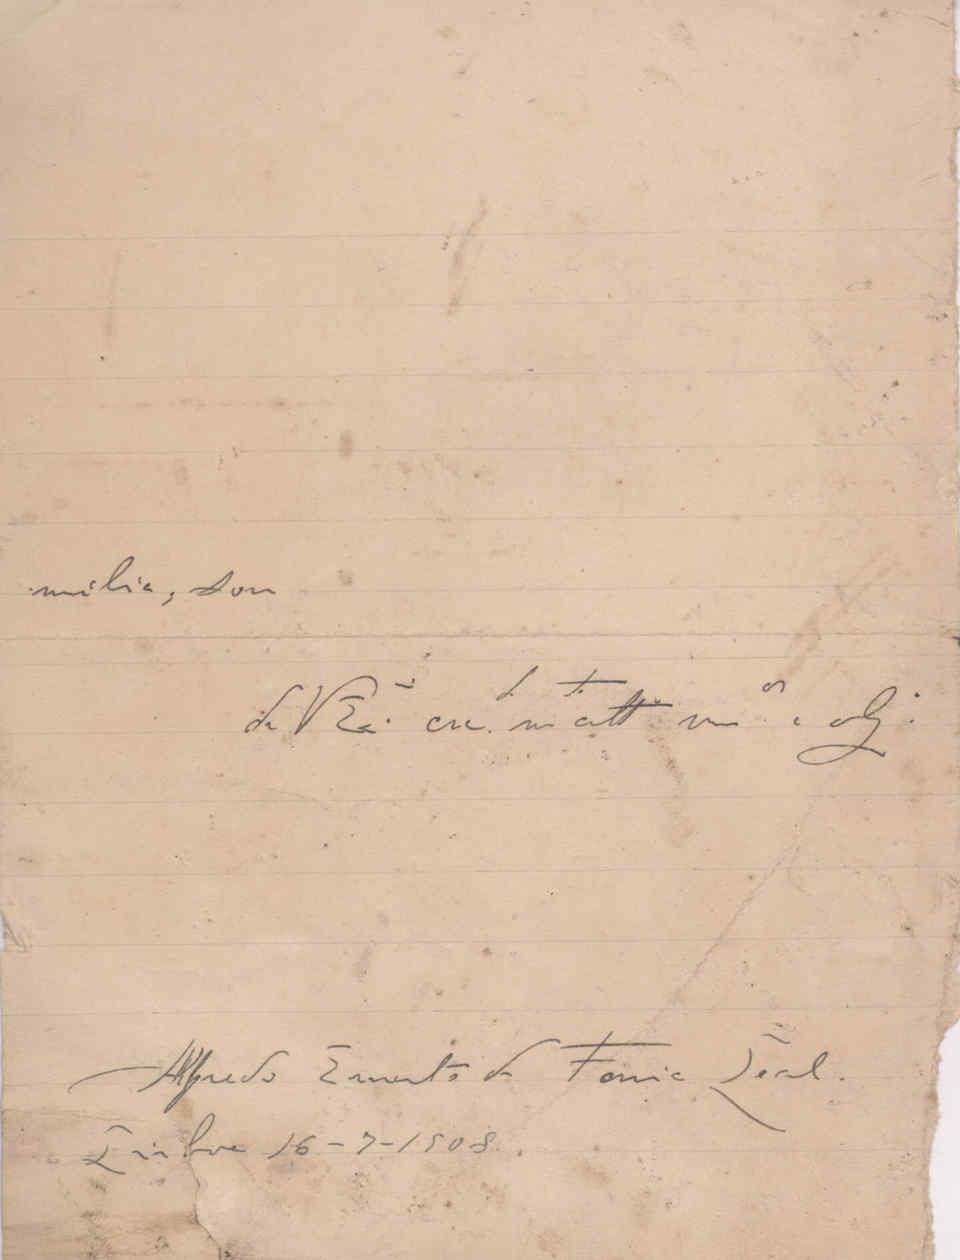 milia, sou
de V. Exª cre. m. attº vnᵒʳ e obg.
Alfredo Ernesto de Faria Leal.
Lisboa 16-7-1908.